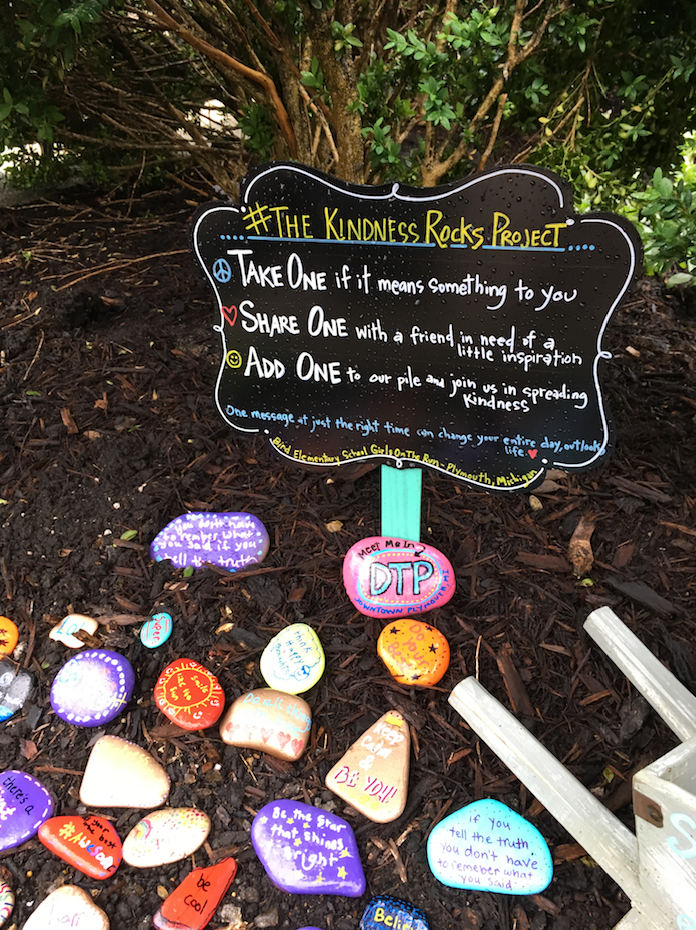 #THE KINDNESS ROCKS PROJECT....
TAKE ONE if it means something to you
SHARE ONE with a friend in need of a
little inspiration
ADD ONE to our pile and join us in spreading
kindness
One message at just the right time can change your entire day, outlook,
life.
Bird Elementary School Girls On The Run - Plymouth, Michigan
you don't have
to remember what
you said if you
tell the truth
Meet Me In
DTP
DOWNTOWN PLYMOUTH MI
think
Happy
Do
your
BEST
smile
like the
sun
Do all things
Keep
Calm
&
BE YOU!
there's a
your the best
#Awesome
Be the Star
that shines
bright
if you
tell the truth,
you don't have
to remeber what
you said.
be
cool
Believe